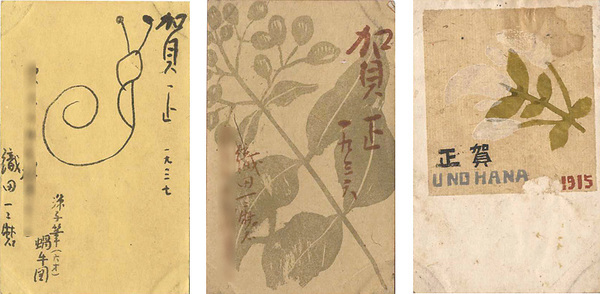 賀正
一九三七
織田一磨
子筆(六才)
蝸牛図
賀正
一九三六
織田一磨
賀正
UNOHANA
1915